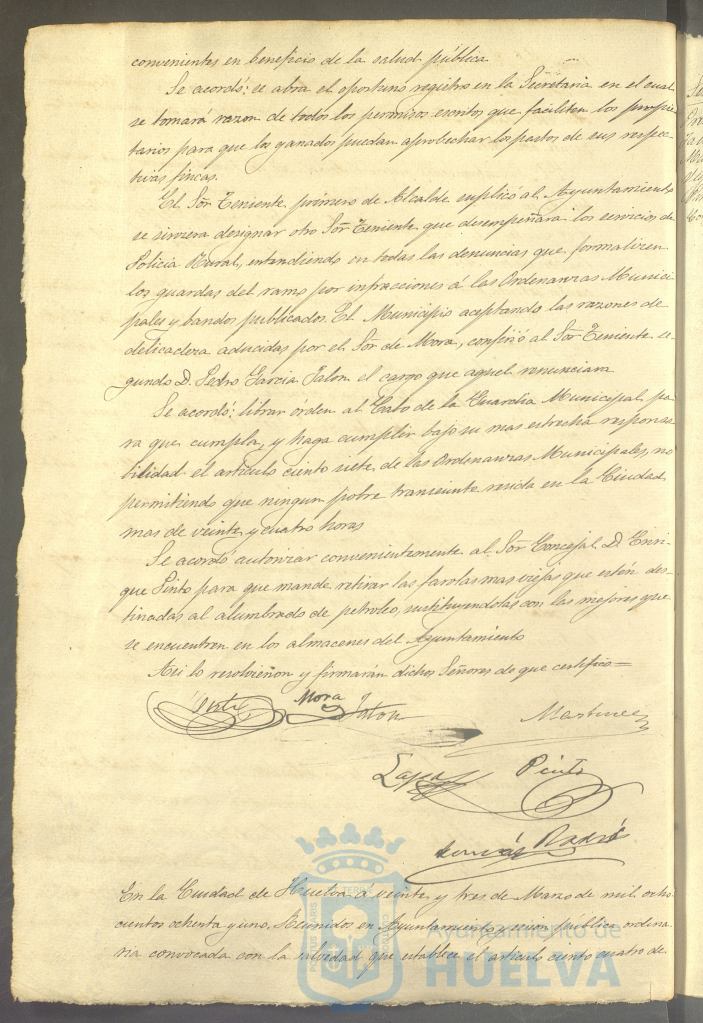 convenientes en beneficio de la salud pública
Se acordó: se abra el oportuno registro en la Secretaria en el cual
se tomará razon de todos los permisos escritos que faciliten los propie
tarios para que los ganados puedan aprobechar los pastos de sus respec
tivas fincas.
El Sor. Teniente primero de Alcalde suplicó al Ayuntamiento
se sirviera designar otro Sor. Teniente que desempeñara los servicios de
Policia Rural, entendiendo en todas las denuncias que formalicen
los guardas del ramo por infracciones á las Ordenanzas Munici
pales y bandos publicados. El Municipio aceptando las razones de
delicadeza aducidas por el Sor. de Mora, confirió al Sor. Teniente se
gundo D. Pedro Garcia Jalon el cargo que aquel renunciara
Se acordó: librar órden al Cabo de la Guardia Municipal pa
ra que cumpla, y haga cumplir bajo su mas estrecha responsa
bilidad el articulo ciento siete de las Ordenanzas Municipales, no
permitiendo que ningun pobre transeunte resida en la Ciudad
mas de veinte y cuatro horas
Se acordó autorizar convenientemente al Sor. Concejal D. Enri-
que Pinto para que mande retirar las farolas mas viejas que estén des-
tinadas al alumbrado de petroleo, sustituyendolas con las mejores que
se encuentren en los almacenes del Ayuntamiento
Asi lo resolvieron y firmarán dichos Señores de que certifico=
Mora
Jalon
Martinez
Pinto
En la Ciudad de Huelva a veinte y tres de Marzo de mil ocho
cientos ochenta y uno, Reunidos en Ayuntamiento y sesion pública ordina
ria convocada con la salvedad que establece el articulo ciento cuatro de
Ayuntamiento de
HUELVA